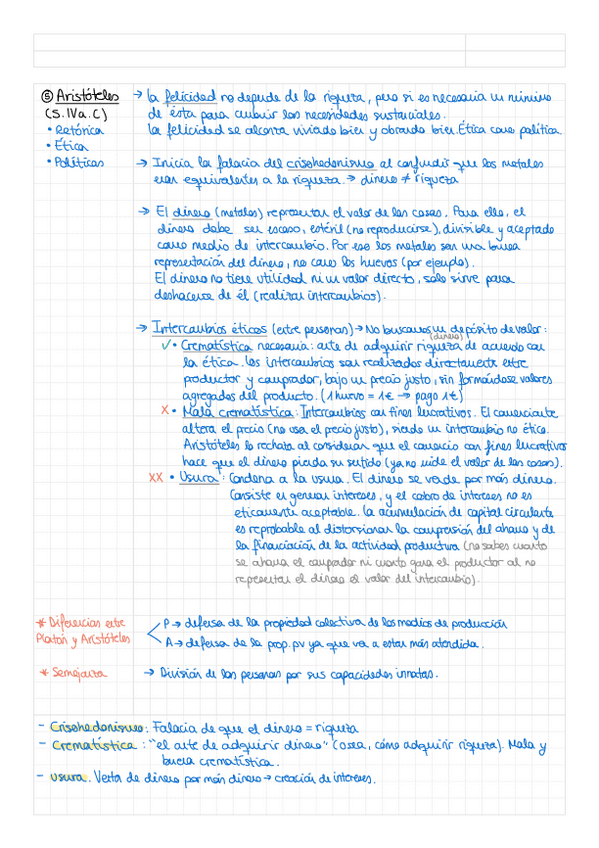 ⑤ Aristóteles
(S. IV a. C)
• Retórica
• Ética
• Políticas
→ La felicidad no depende de la riqueza, pero si es necesaria un mínimo
de ésta para cubrir las necesidades sustanciales.
La felicidad se alcanza viviendo bien y obrando bien. Ética como política
→ Inicia la falacia del crisohedonismo al confundir que los metales
eran equivalentes a la riqueza. → dinero ≠ riqueza
→ El dinero (metales) representan el valor de las cosas. Para ello, el
dinero debe ser escaso, estéril (no reproducirse), divisible y aceptado
como medio de intercambio. Por eso los metales son una buena
representación del dinero, no como los huevos (por ejemplo).
El dinero no tiene utilidad ni un valor directo, solo sirve para
deshacerse de él (realizar intercambios).
→ Intercambios éticos (entre personas) → No buscamos un depósito de valor:
(dinero)
✓ • Crematística necesaria: arte de adquirir riqueza de acuerdo con
la ética. Los intercambios son realizados directamente entre
productor y comprador, bajo un precio justo, sin formándose valores
agregados del producto. (1 huevo = 1€ → pago 1€)
X • Mala crematística: Intercambios con fines lucrativos. El comerciante
altera el precio (no usa el precio justo), siendo un intercambio no ético.
Aristóteles lo rechaza al considerar que el comercio con fines lucrativos
hace que el dinero pierda su sentido (ya no mide el valor de las cosas).
XX • Usura: Condena a la usura. El dinero se vende por más dinero.
Consiste en generar intereses, y el cobro de intereses no es
éticamente aceptable. La acumulación de capital circulante
es reprobable al distorsionar la comprensión del ahorro y de
la financiación de la actividad productora (no sabes cuanto
se ahorra el comprador ni cuanto gana el productor al no
representar el dinero el valor del intercambio).
* Diferencias entre
Platón y Aristóteles
P → defensa de la propiedad colectiva de los medios de producción
A → defensa de la prop. pv ya que va a estar más atendida.
* Semejanza
→ División de las personas por sus capacidades innatas.
- Crisohedonismo: Falacia de que el dinero = riqueza
- Crematística: "el arte de adquirir dinero" (osea, cómo adquirir riqueza). Mala y
buena crematística.
- Usura. Venta de dinero por más dinero → creación de intereses.